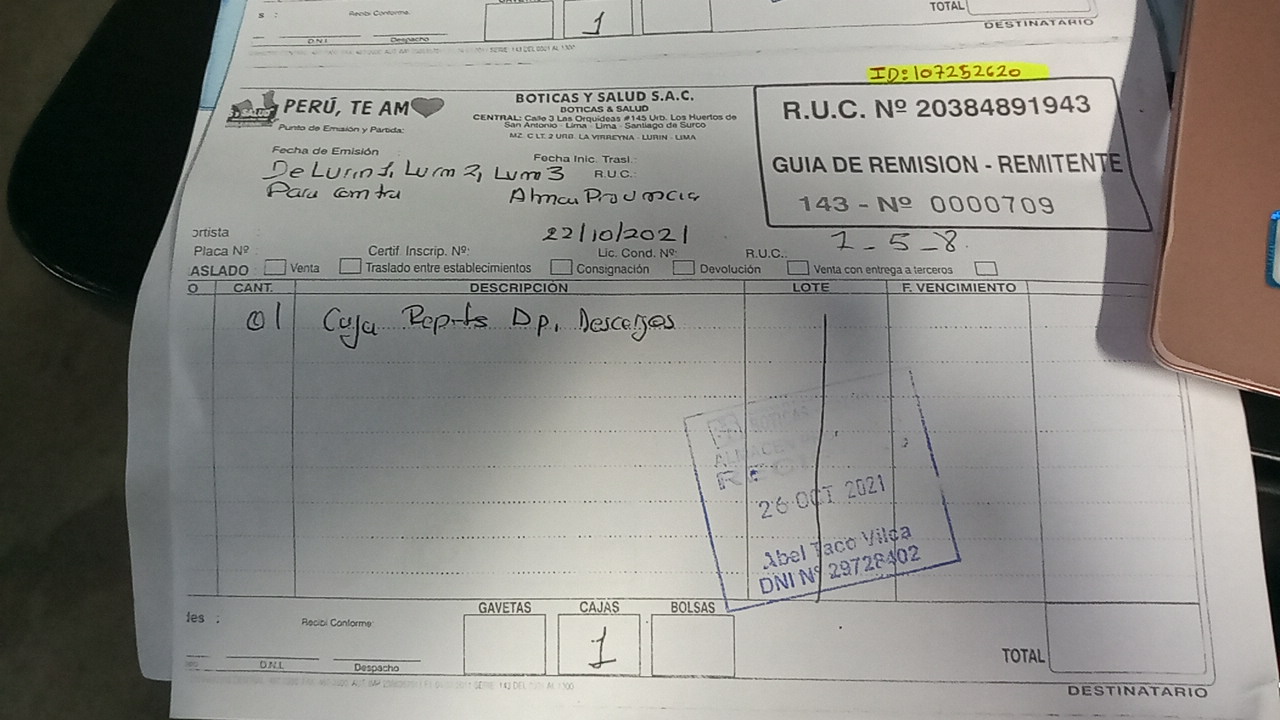 s :
Recibí Conforme:
D.N.I.
Despacho
1
TOTAL
DESTINATARIO
ID: 107252620
SALUD
PERÚ, TE AM
Punto de Emisión y Partida:
BOTICAS Y SALUD S.A.C.
BOTICAS & SALUD
CENTRAL: Calle 3 Las Orquideas #145 Urb. Los Huertos de
San Antonio - Lima - Lima - Santiago de Surco
MZ. C LT. 2 URB. LA VIRREYNA - LURIN - LIMA
R.U.C. Nº 20384891943
GUIA DE REMISION - REMITENTE
143 - Nº 0000709
Fecha de Emisión
Fecha Inic. Trasl.
De Lurin 1, Lurin 2, Lurin 3
R.U.C.:
Para
Provincia
22/10/2021
7 - 5 - 8
ortista
Placa Nº
Certif. Inscrip. Nº:
Lic. Cond. Nº:
R.U.C.:
ASLADO Venta Traslado entre establecimientos Consignación Devolución Venta con entrega a terceros
O CANT. DESCRIPCIÓN LOTE F. VENCIMIENTO
01 Caja Dp. Descargos
BOTICAS
26 OCT 2021
Abel Taco Vilca
DNI Nº 29728402
des :
Recibí Conforme:
D.N.I.
Despacho
GAVETAS CAJAS BOLSAS
1
TOTAL
DESTINATARIO